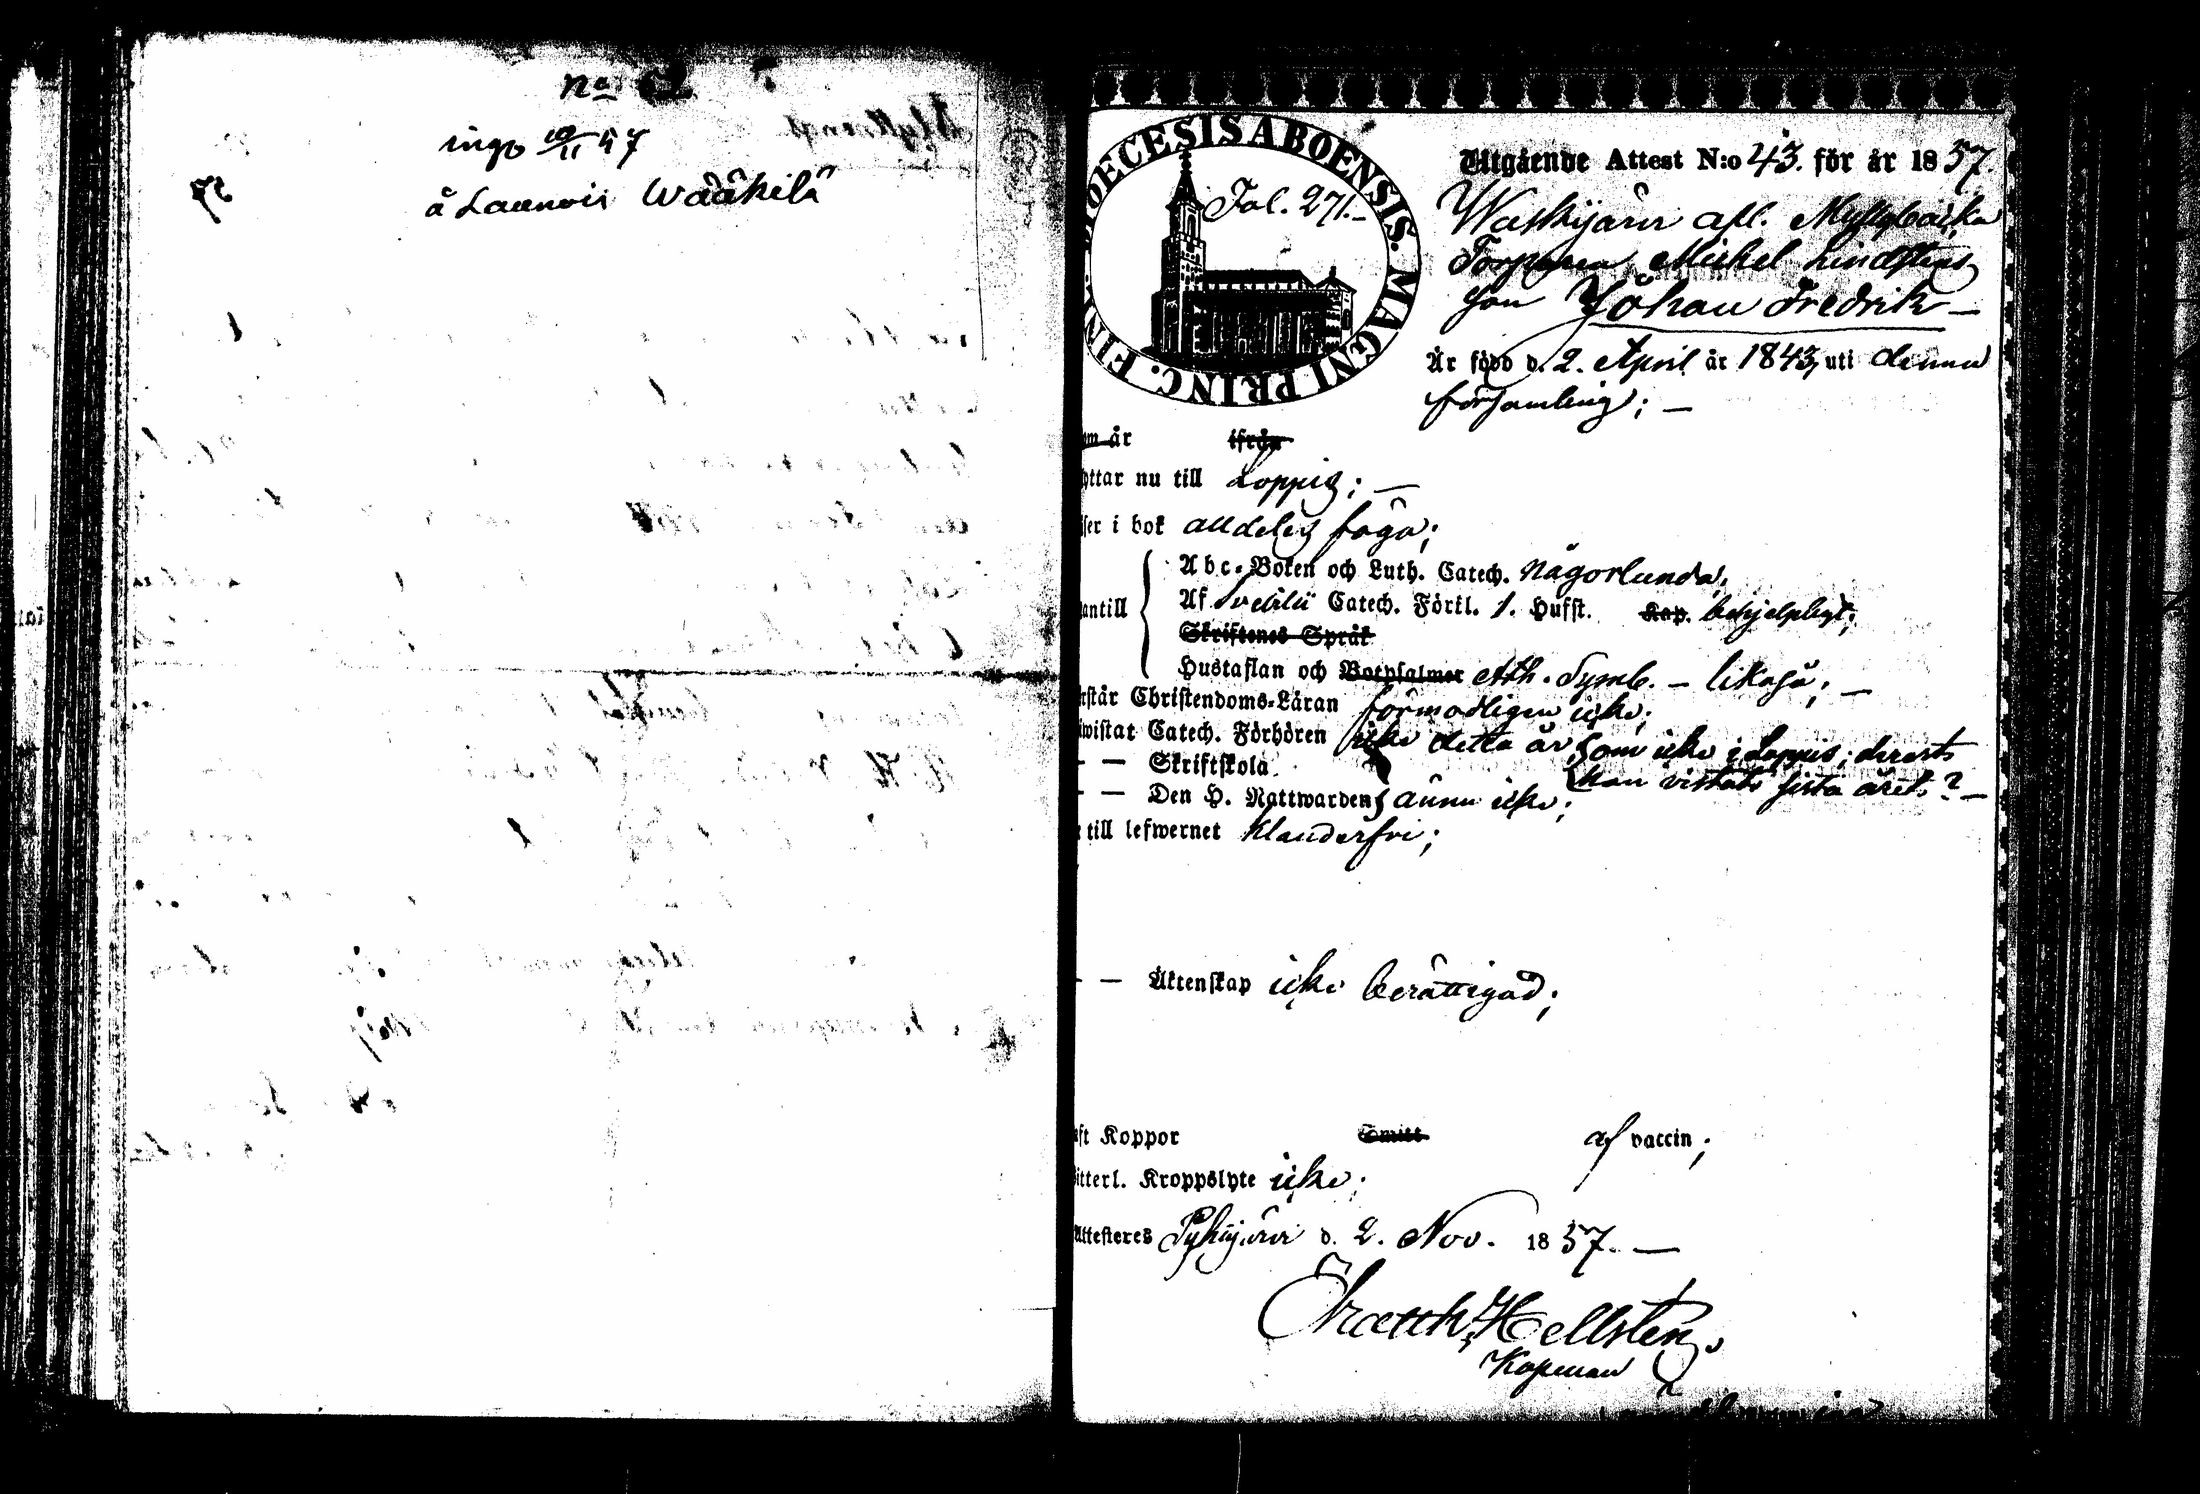 No 62
ingo 10/11 57
å Laurois Wääkilä
DIOECESIS ABOENSIS. MAGNI PRINC. FINL.
Fol. 271.-
Utgående Attest N:o 43. för år 1857.
Waskijärvi afl. Myllybacka
Torparen Michel Lindstens
son Johan Fredrik —
Är född d. 2. April år 1843, uti denna
församling; —
om år ifrån
yttar nu till Loppis; —
ser i bok alldeles föga;
antill
Abc-Boken och Luth. Catech. någorlunda,
Af Svebilii Catech. Förkl. 1. Hufst. Kap. behjelpligt;
Skriftenes Språk
Hustaflan och Botpsalmer Ath. Symb. — likaså; —
rstår Christendoms-Läran förmodligen icke;
wistat Catech. Förhören icke detta år som icke i Loppis; derest
— — Skriftskola han vistats sista året? —
— — Den H. Nattwarden ännu icke;
till lefwernet klanderfri;
— — Äktenskap icke berättigad;
ft Koppor Smitt af vaccin;
itterl. Kroppslyte icke;
Attesteres Pyhäjärvi d. 2. Nov. 1857. —
Hellsten.